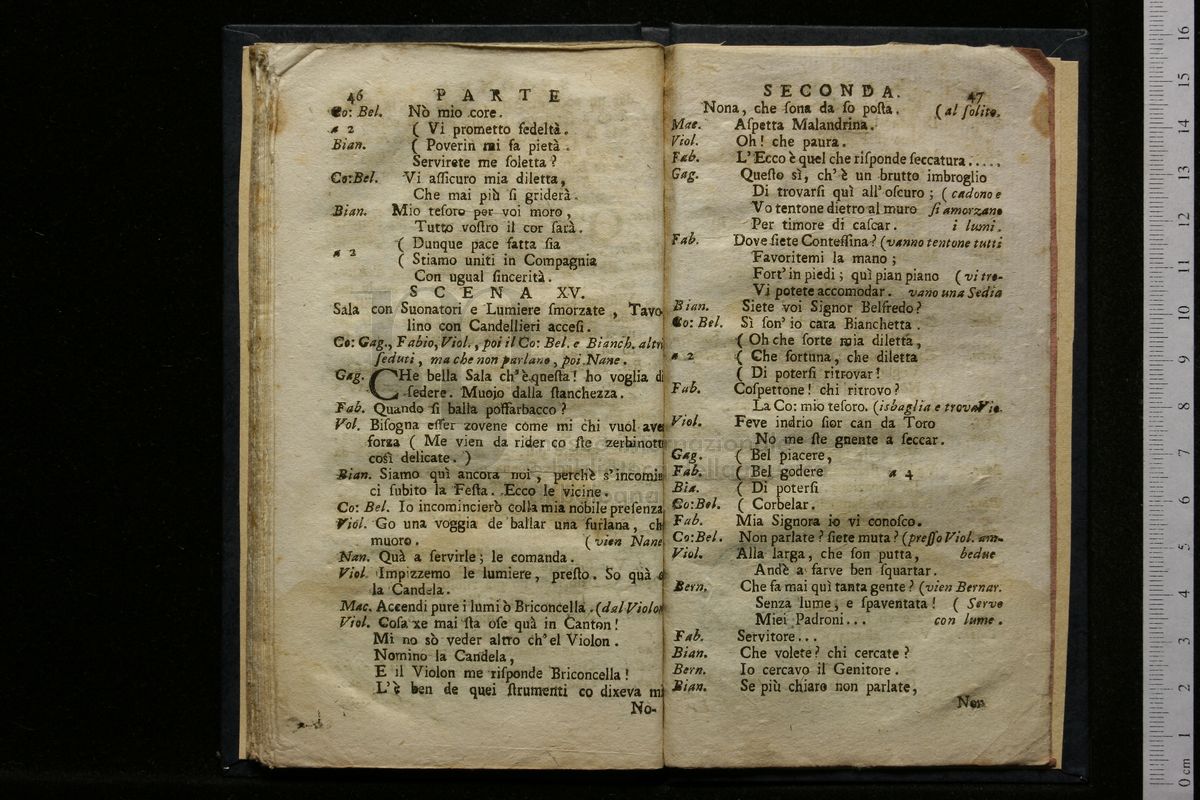 46 PARTE
Co: Bel. Nò mio core.
a 2 ( Vi prometto fedeltà.
Bian. ( Poverin mi fa pietà.
Servirete me ſoletta?
Co:Bel. Vi aſſicuro mia diletta,
Che mai più ſi griderà.
Bian. Mio teſoro per voi moro,
Tutto voſtro il cor ſarà.
( Dunque pace fatta ſia
a 2 ( Stiamo uniti in Compagnia
Con ugual ſincerità.
SCENA XV.
Sala con Suonatori e Lumiere ſmorzate, Tavo
lino con Candellieri acceſi.
Co: Gag., Fabio, Viol., poi il Co: Bel. e Bianch. altri
ſeduti, ma che non parlano, poi Nane.
Gag. CHe bella Sala ch'è queſta! ho voglia di
ſedere. Muojo dalla ſtanchezza.
Fab. Quando ſi balla poſſarbacco?
Vol. Biſogna eſſer zovene come mi chi vuol aver
forza ( Me vien da rider co ſte zerbinott
così delicate. )
Bian. Siamo quì ancora noi, perchè s'incomin
ci ſubito la Feſta. Ecco le vicine.
Co: Bel. Io incomincierò colla mia nobile preſenza
Viol. Go una voggia de ballar una furlana, ch
muoro. ( vien Nane
Nan. Quà a ſervirle; le comanda.
Viol. Impizzemo le lumiere, preſto. So quà
la Candela.
Mac. Accendi pure i lumi ò Briconcella. (dal Violon
Viol. Coſa xe mai ſta oſe quà in Canton!
Mi no sò veder altro ch'el Violon.
Nomino la Candela,
E il Violon me riſponde Briconcella!
L'è ben de quei ſtrumenti co dixeva mi
No-
SECONDA. 47
Nona, che ſona da ſo poſta. (al ſolito.
Mac. Aſpetta Malandrina.
Viol. Oh! che paura.
Fab. L'Ecco è quel che riſponde ſeccatura.....
Gag. Queſto sì, ch'è un brutto imbroglio
Di trovarſi quì all'oſcuro; ( cadono e
Vo tentone dietro al muro ſi amorzano
Per timore di caſcar. i lumi.
Fab. Dove ſiete Conteſſina? (vanno tentone tutti
Favoritemi la mano;
Fort' in piedi; quì pian piano (vi tro-
Vi potete accomodar. vano una Sedia
Bian. Siete voi Signor Belfredo?
Co: Bel. Sì ſon' io cara Bianchetta.
( Oh che ſorte mia diletta,
a 2 ( Che fortuna, che diletta
( Di poterſi ritrovar!
Fab. Coſpettone! chi ritrovo?
La Co: mio teſoro. (isbaglia e trova Vio.
Viol. Feve indrio ſior can da Toro
No me ſte gnente a ſeccar.
Gag. ( Bel piacere,
Fab. ( Bel godere a 4
Bia. ( Di poterſi
Co:Bel. ( Corbelar.
Fab. Mia Signora io vi conoſco.
Co:Bel. Non parlate? ſiete muta? (preſſo Viol. am-
Viol. Alla larga, che ſon putta, bedue
Andè a farve ben ſquartar.
Bern. Che fa mai quì tanta gente? (vien Bernar.
Senza lume, e ſpaventata! ( Servo
Miei Padroni... con lume.
Fab. Servitore...
Bian. Che volete? chi cercate?
Bern. Io cercavo il Genitore.
Bian. Se più chiaro non parlate,
Non
16
15
14
13
12
11
10
9
8
7
6
5
4
3
2
1
0 cm